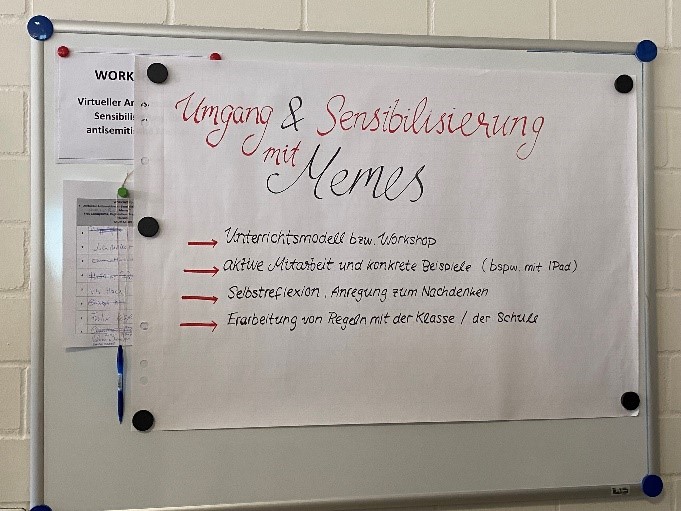 WORK
Virtueller An
Sensibilis
antisemiti
Umgang & Sensibilisierung
mit
Memes
→ Unterrichtsmodell bzw. Workshop
→ aktive Mitarbeit und konkrete Beispiele (bspw. mit IPad)
→ Selbstreflexion, Anregung zum Nachdenken
→ Erarbeitung von Regeln mit der Klasse / der Schule